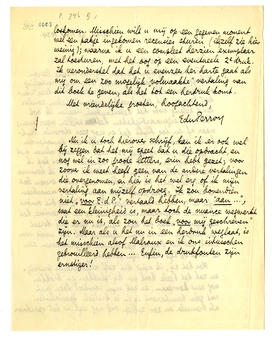 toekomen. Misschien wilt u mij op een gegeven moment
een pakje ingekomen recensies sturen (ik zelf zie hier
weinig); waarna ik u een compleet herzien exemplaar
zal toesturen, met het oog op een eventueele 2e druk.
Ik veronderstel dat het u evenzeer ter harte gaat als
mij om een zoo mogelijk "volmaakte" vertaling van
dit boek te geven, als het tot een herdruk komt.
Met vriendelijke groeten, hoogachtend,
EduPerron
Nu ik u toch hierover schrijf, kan ik er ook wel
bij zeggen dat het mij speet dat u die opdracht en
nog wel in zoo groote letters, erin hebt gezet; voor
zoover ik weet heeft geen van de andere vertalingen
die overgenomen, en hier is het wel erg of ik mijn
vertaling aan mijzelf opdroeg. Ik zou bovendien
niet "voor E.d.P." vertaald hebben, maar "aan ...",
wat een kleinigheid is, maar toch de nuance wegwerkt
die er nu is, als zou het boek voor mij geschreven
zijn. Maar als u het nu in een herdruk weglaat, is
het misschien alsof Malraux en ik ons intusschen
gebrouilleerd hebben ... Enfin, de drukfouten zijn
ernstiger!